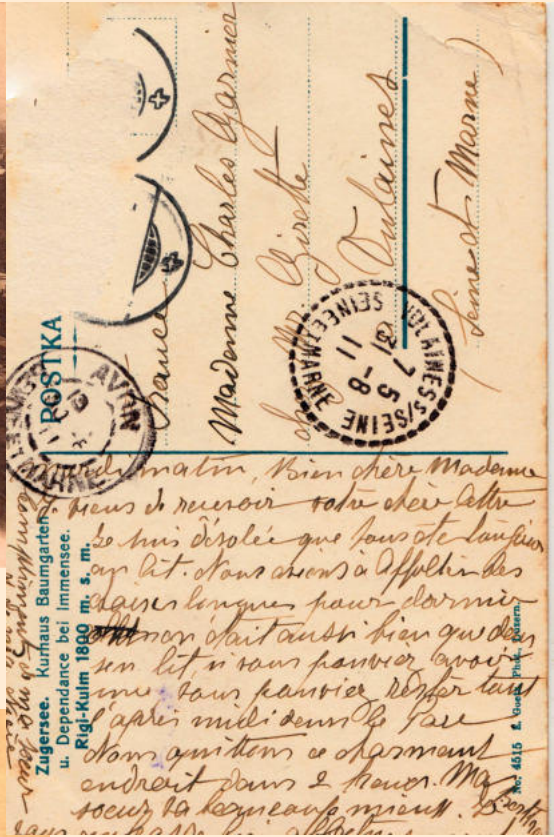 POSTKA
France
Madame Charles Garnier
ch Mr. Girette
Vulaines
Seine et Marne
VULAINES S/SEINE
SEINE ET MARNE
7 5
11 -8
31
AVON
SEINE ET MARNE
Zugersee. Kurhaus Baumgarten
u. Dependance bei Immensee.
Rigi-Kulm 1800 m. s. m.
No. 4515 E. Goetz, Phot., Luzern.
Mardi matin, Bien chère Madame
Je viens de recevoir votre chère lettre
Je suis désolée que vous ete toujours
au lit. Nous avons à Affoltern des
chaises longues pour dormir
on était aussi bien que dans
son lit si vous pouviez avoir
une vous pouviez rester tout
l'après midi dans le Parc
Nous quittons ce charmant
endroit dans 2 heures. Ma
soeur va beaucoup mieux.